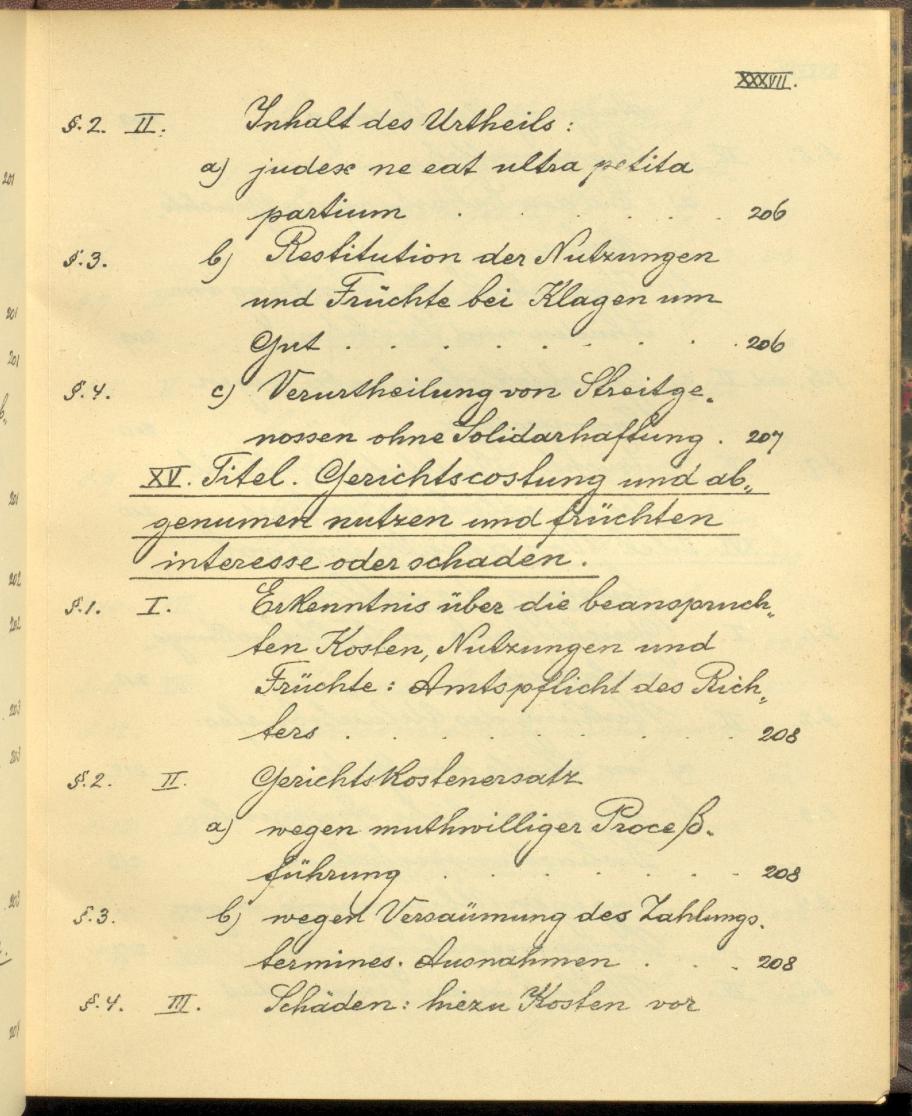 XXXVII.
§.2. II. Inhalt des Urtheils:
a) judex ne eat ultra petita
partium . . . . . . 206
§.3. b) Restitution der Nutzungen
und Früchte bei Klagen um
Gut . . . . . . . . . 206
§.4. c) Verurtheilung von Streitge-
nossen ohne Solidarhaftung . 207
XV. Titel. Gerichtscostung und ab„
genumen nutzen und früchten
interesse oder schaden.
§.1. I. Erkenntnis über die beanspruch„
ten Kosten, Nutzungen und
Früchte: Amtspflicht des Rich„
ters . . . . . . . . 208
§.2. II. Gerichtskostenersatz
a) wegen muthwilliger Proceß-
führung . . . . . . . 208
§.3. b) wegen Versäumung des Zahlungs-
termines. Ausnahmen . . . 208
§.4. III. Schäden: hiezu Kosten vor
201
201
201
201
202
202
203
203
203
201